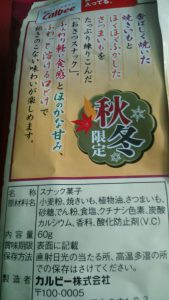 Calbee
香ばしく焼いた
焼きいもと
ほくほくふかした
さつまいもを
たっぷり練りこんだ
「おさつスナック」。
ふんわり軽い食感とほのかな甘み、
ふわっと溶ける口どけで
飽きのこない味わいが楽しめます。
秋冬
限定
名称 スナック菓子
原材料名 小麦粉、焼きいも、植物油、さつまいも、
砂糖、でん粉、食塩、クチナシ色素、炭酸
カルシウム、香料、酸化防止剤(V.C)
内容量 60g
賞味期限 表面に記載
保存方法 直射日光の当たる所、高温多湿の所
での保存はさけてください。
製造者 カルビー株式会社
〒100-0005